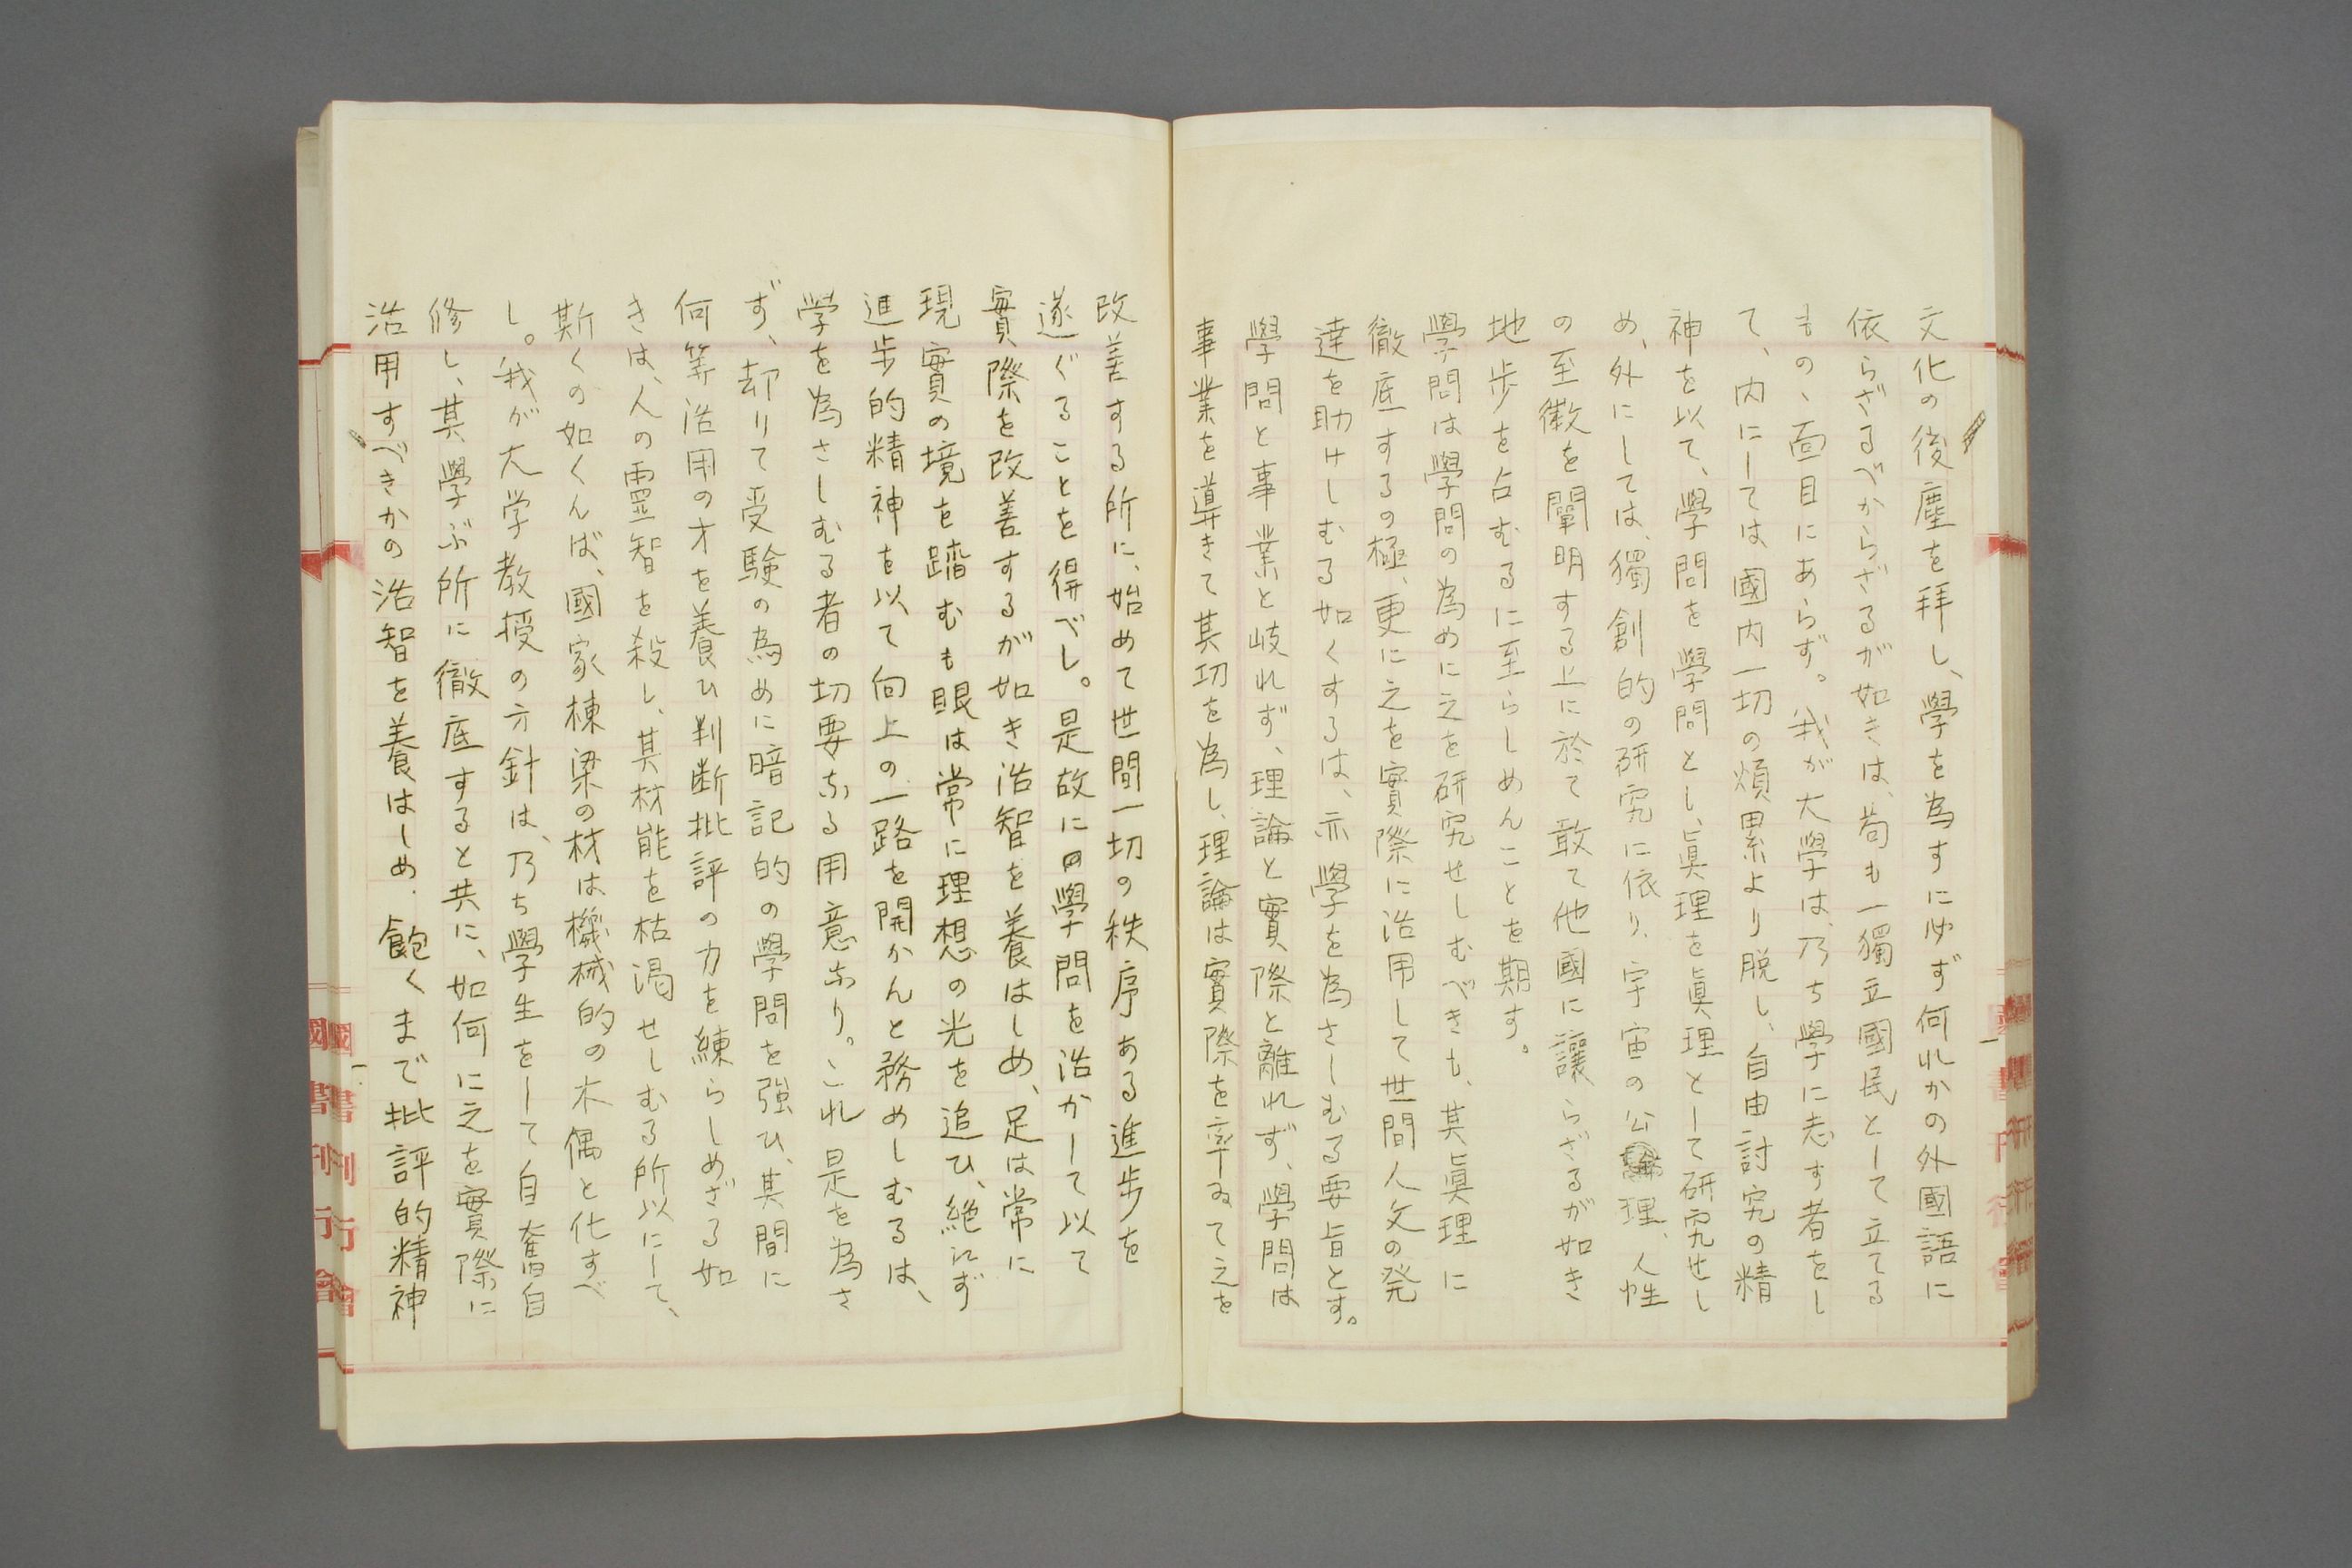 文化の後塵を拜し、學を為すに必ず何れかの外國語に
依らざるべからざるが如きは、苟も一獨立國民として立てる
もの、面目にあらず。我が大學は、乃ち學に志す者をし
て、内にしては國内一切の煩累より脱し、自由討究の精
神を以て、學問を學問とし、眞理を眞理として研究せし
め、外にしては、獨創的の研究に依り、宇宙の公理、人性
の至徴を闡明する上に於て敢て他國に讓らざるが如き
地歩を占むるに至らしめんことを期す。
學問は學問の為めに之を研究せしむべきも、其眞理に
徹底するの極、更に之を實際に活用して世間人文の発
達を助けしむる如くするは、亦學を為さしむる要旨とす。
學問と事業と岐れず、理論と實際と離れず、學問は
事業を導きて其切を為し、理論は實際を率ゐて之を
改善する所に、始めて世間一切の秩序ある進歩を
遂ぐることを得べし。是故に學問を活かして以て
實際を改善するが如き活智を養はしめ、足は常に
現實の境を踏むも眼は常に理想の光を追ひ、絶えず
進歩的精神を以て向上の一路を開かんと務めしむるは、
学を為さしむる者の切要なる用意なり。これ是を為さ
ず、却りて受験の為めに暗記的の學問を強ひ、其間に
何等活用の才を養ひ判断批評の力を練らしめざる如
きは、人の靈智を殺し、其材能を枯渇せしむる所以にして、
斯くの如くんば、國家棟梁の材は機械的の木偶と化すべ
し。我が大学教授の方針は、乃ち學生をして自奮自
修し、其學ぶ所に徹底すると共に、如何に之を實際に
活用すべきかの活智を養はしめ、飽くまで批評的精神
國書刊行會
國書刊行會